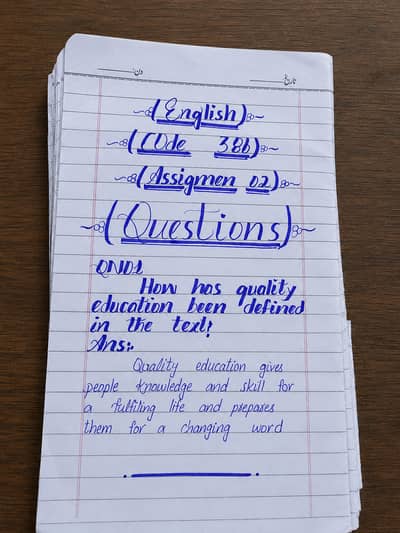 دن: تاریخ:
(English)
(Code 386)
(Assigmen 02)
(Questions)
QN01
How has quality
education been defined
in the text?
Ans:
Quality education gives
people knowledge and skill for
a fulfiling life and prepares
them for a changing word